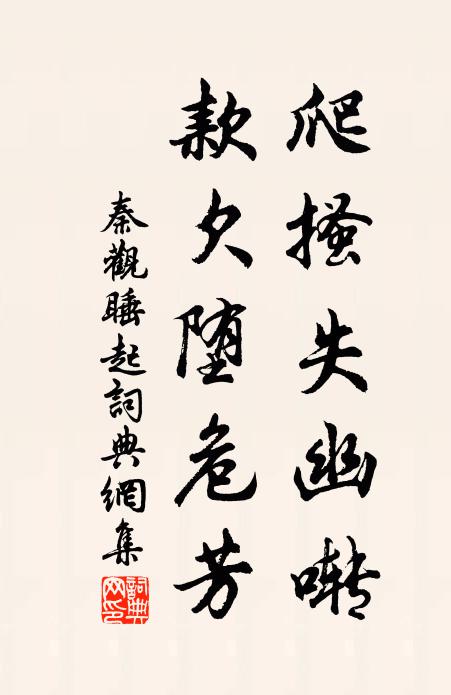 爬搔失幽啭
款欠堕危芳
秦觀睡起詞典網集
詞典網印